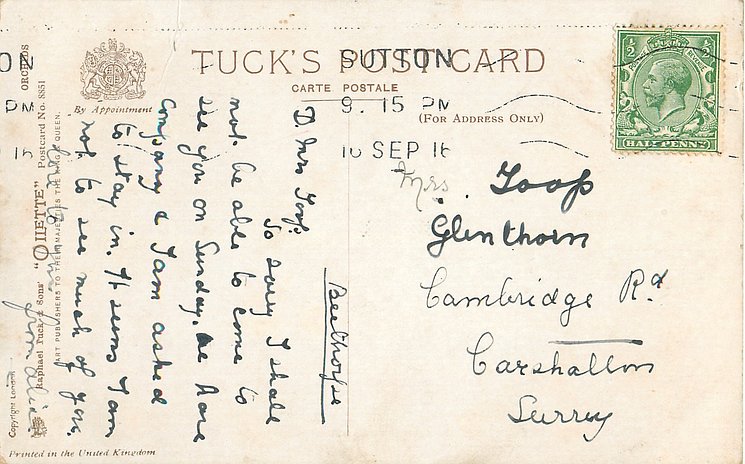 TUCK'S POST CARD
CARTE POSTALE
By Appointment
(For Address Only)
SUTTON
9. 15 PM
16 SEP 16
ON
PM
HALFPENNY
Mrs Toop
Glenthorn
Cambridge Rd
Carshalton
Surrey
Beethorpe
D. Mrs Toop:
So sorry I shall
not be able to come to
see you on Sunday. We have
company & I am asked
to stay in. It seems I am
not to see much of you.
love
from
ORCHIDS
Raphael Tuck & Sons' "OILETTE" Postcard No. 8851
ART PUBLISHERS TO THEIR MAJESTIES THE KING & QUEEN.
Copyright London
Printed in the United Kingdom